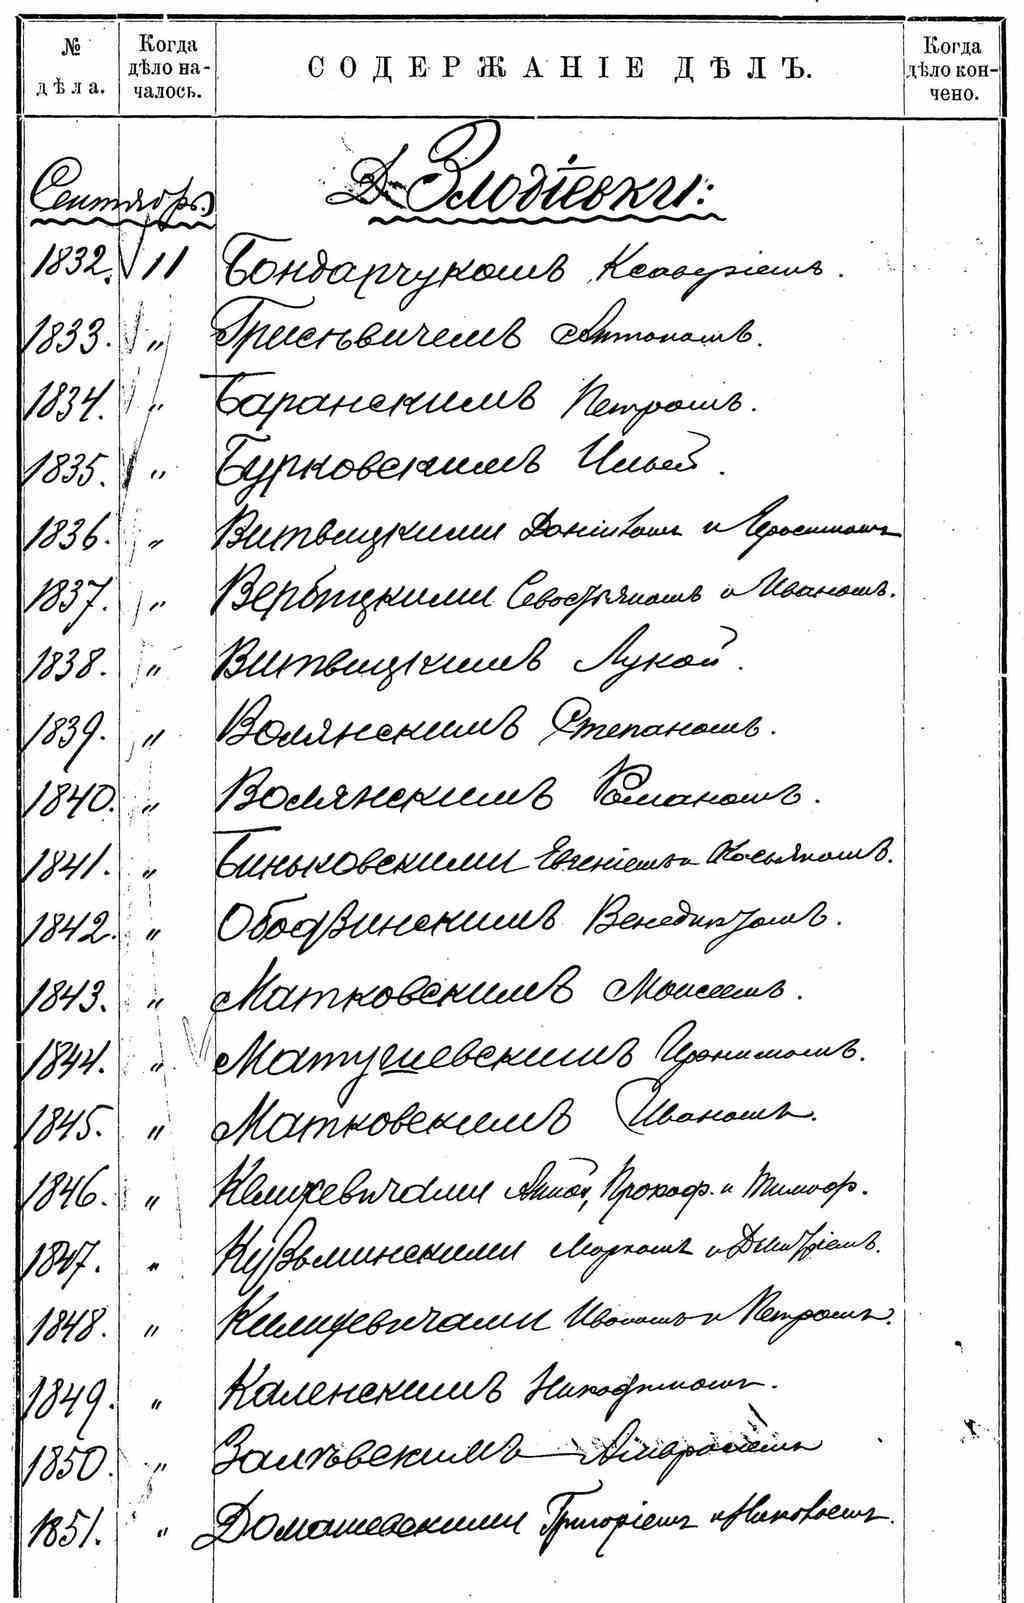 № дѣла.
Когда дѣло началось.
СОДЕРЖАНІЕ ДѢЛЪ.
Когда дѣло кончено.
Сентябрь. Д. Злодіевки:
1832. 11 Бондарчукомъ Ксаверіемъ.
1833. " Грисѣвичемъ Антономъ.
1834. " Баранскимъ Петромъ.
1835. " Бурковскимъ Ильей.
1836. " Витвицкими Даніиломъ и Еросимомъ
1837. " Вербицкими Севастьяномъ и Иваномъ.
1838. " Витвицкимъ Лукой.
1839. " Волянскимъ Степаномъ.
1840. " Волянскимъ Романомъ.
1841. " Биньковскими Евгеніемъ и Касьяномъ.
1842. " Ободзинскимъ Венедиктомъ.
1843. " Матковскимъ Моисеемъ.
1844. " Матушевскимъ Іеронимомъ.
1845. " Матковскимъ Иваномъ.
1846. " Прокоф. и Тимоф.
1847. " Кузьминскими Маркомъ и Дмитріемъ.
1848. " Климкевичами Иваномъ и Петромъ.
1849. " Каленскимъ Никодимомъ.
1850. " Залѣвскимъ Амвросіемъ
1851. " Домашевскими Григоріемъ и Николаемъ.